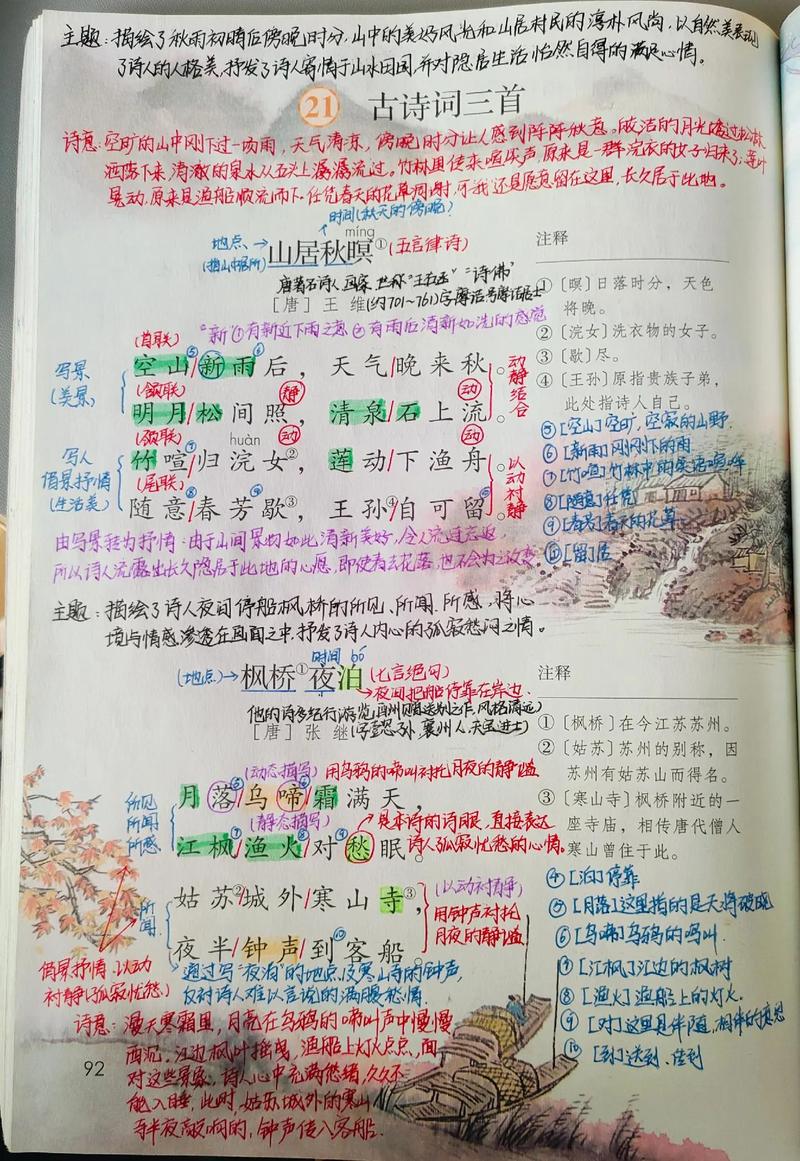 主题:描绘了秋雨初晴后傍晚时分,山中的美好风光和山居村民的淳朴风尚,以自然美表现
了诗人的人格美,抒发了诗人寄情于山水田园,并对隐居生活怡然自得的满足心情。
21 古诗词三首
诗意:空旷的山中刚下过一场雨,天气清凉,傍晚时分让人感到阵阵秋意。皎洁的月光透过松林
洒落下来,清澈的泉水从石头上潺潺流过。竹林里传来喧笑声,原来是一群浣衣的女子归来了;莲叶
晃动,原来是渔船顺流而下。任凭春天的花草凋谢,可我还是愿意留在这里,长久居于此地。
时间(秋天的傍晚)
míng
地点 →
(指山中居所)
山居秋暝①
(五言律诗)
唐著名诗人、画家,世称“王右丞”“诗佛”
[唐] 王 维
(约701~761)字摩诘号摩诘居士
“新”①有新近下雨之意 ②有雨后清新如洗的感觉
(首联)
空山/新雨后, 天气/晚来秋。
(颔联)
静
动
明月/松间照, 清泉/石上流。
写景
(美景)
动静结合
(颈联)
huàn
动
动
竹喧/归浣女②, 莲动/下渔舟。
(尾联)
随意/春芳歇③, 王孙④自可留。
写人
借景抒情
(生活美)
以动衬静
由写景转为抒情:由于山间景物如此清新美好,令人流连忘返,
所以诗人流露出长久隐居于此地的心愿,即使春去花落,也不会为之改变
注释
①〔暝〕日落时分,天色
将晚。
②〔浣女〕洗衣物的女子。
③〔歇〕尽。
④〔王孙〕原指贵族子弟,
此处指诗人自己。
⑤[空山]空旷,空寂的山野.
⑥[新雨]刚刚下的雨
⑦[竹喧]竹林中的笑语喧哗
⑧[随意]任凭
⑨[春芳]春天的花草
⑩[留]居
主题:描绘了诗人夜间停船枫桥的所见、所闻、所感,将心
境与情感渗透在画面之中,抒发了诗人内心的孤寂愁闷之情。
时间 bó
(地点)→ 枫桥①夜泊 (七言绝句)
→夜间把船停靠在岸边.
[唐] 张 继
(字懿孙,襄州人,天宝进士)
(动态描写) 用乌鸦的啼叫衬托月夜的静谧
月落/乌啼/霜满天,
(静态描写)
是本诗的诗眼,直接表达
诗人孤寂忧愁的心情。
江枫/渔火/对愁眠。
所见
所闻
所感
姑苏②城外寒山寺③,
夜半/钟声/到客船。
所闻
(以动衬静)
用钟声衬托
月夜的静谧
借景抒情、以动
衬静(孤寂忧愁)
通过写“夜泊”的地点及寒山寺的钟声,
反衬诗人难以言说的满腹愁情.
诗意:漫天寒霜里,月亮在乌鸦的啼叫声中慢慢
西沉,江边枫叶摇曳,渔船上灯火点点,面
对这些景象,诗人心中充满愁绪,久久不
能入睡,此时,姑苏城外的寒山
寺半夜敲响的,钟声传入客船.
注释
①〔枫桥〕在今江苏苏州。
②〔姑苏〕苏州的别称,因
苏州有姑苏山而得名。
③〔寒山寺〕枫桥附近的一
座寺庙,相传唐代僧人
寒山曾住于此。
④[泊]停靠
⑤[月落]这里指的是天将破晓
⑥[乌啼]乌鸦的鸣叫.
⑦[江枫]江边的枫树
⑧[渔火]渔船上的灯火.
⑨[对]这里是伴随,相伴的意思
⑩[到]送到、传到
92